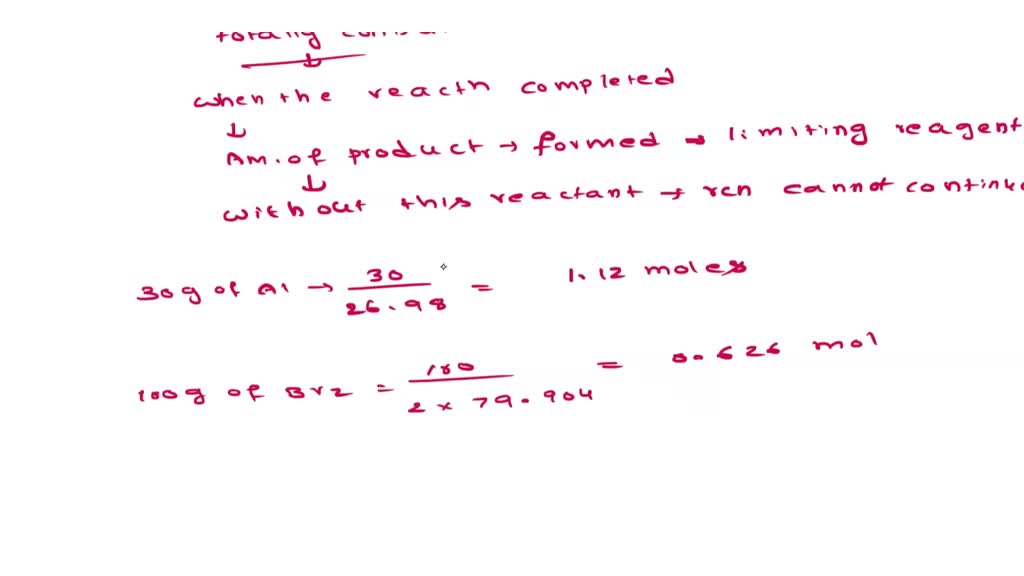 totally
when the reactn completed
↓
Am. of product → formed → limiting reagent
↓
without this reactant → rcn cannot continue
30g of Al → 30 / 26.98 = 1.12 moles
100g of Br2 = 100 / 2 × 79.904 = 0.626 mol